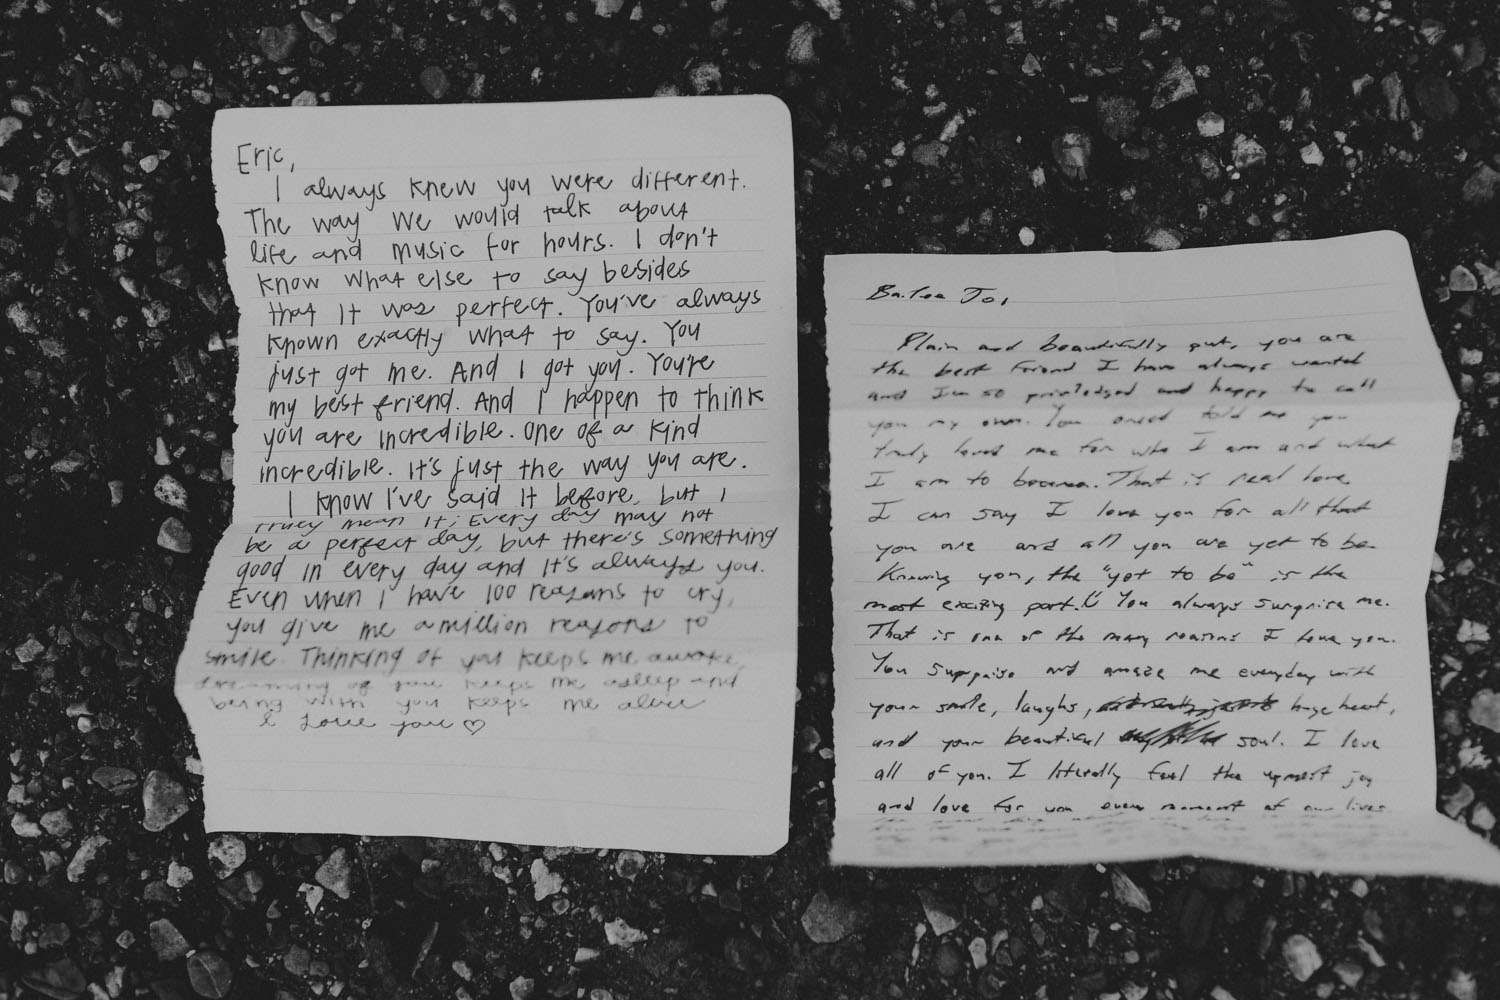 Eric,
I always knew you were different.
The way we would talk about
life and music for hours. I don't
know what else to say besides
that it was perfect. You've always
known exactly what to say. You
just got me. And I got you. You're
my best friend. And I happen to think
you are incredible. One of a kind
incredible. It's just the way you are.
I know I've said it before, but I
truly mean it; Every day may not
be a perfect day, but there's something
good in every day and it's always you.
Even when I have 100 reasons to cry,
you give me a million reasons to
smile. Thinking of you keeps me awake,
dreaming of you keeps me asleep and
being with you keeps me alive
I Love you ♡
Jo,
Plain and beautifully put, you are
the best friend I have always wanted
and I'm so privledged and happy to call
you my own. You once told me you
truly loved me for who I am and what
I am to become. That is real love.
I can say I love you for all that
you are and all you are yet to be.
Knowing you, the "yet to be" is the
most exciting part. You always surprise me.
That is one of the many reasons I love you.
You surprise and amaze me everyday with
your smile, laughs, huge heart,
and your beautiful soul. I love
all of you. I literally feel the upmost joy
and love for you every moment of our lives